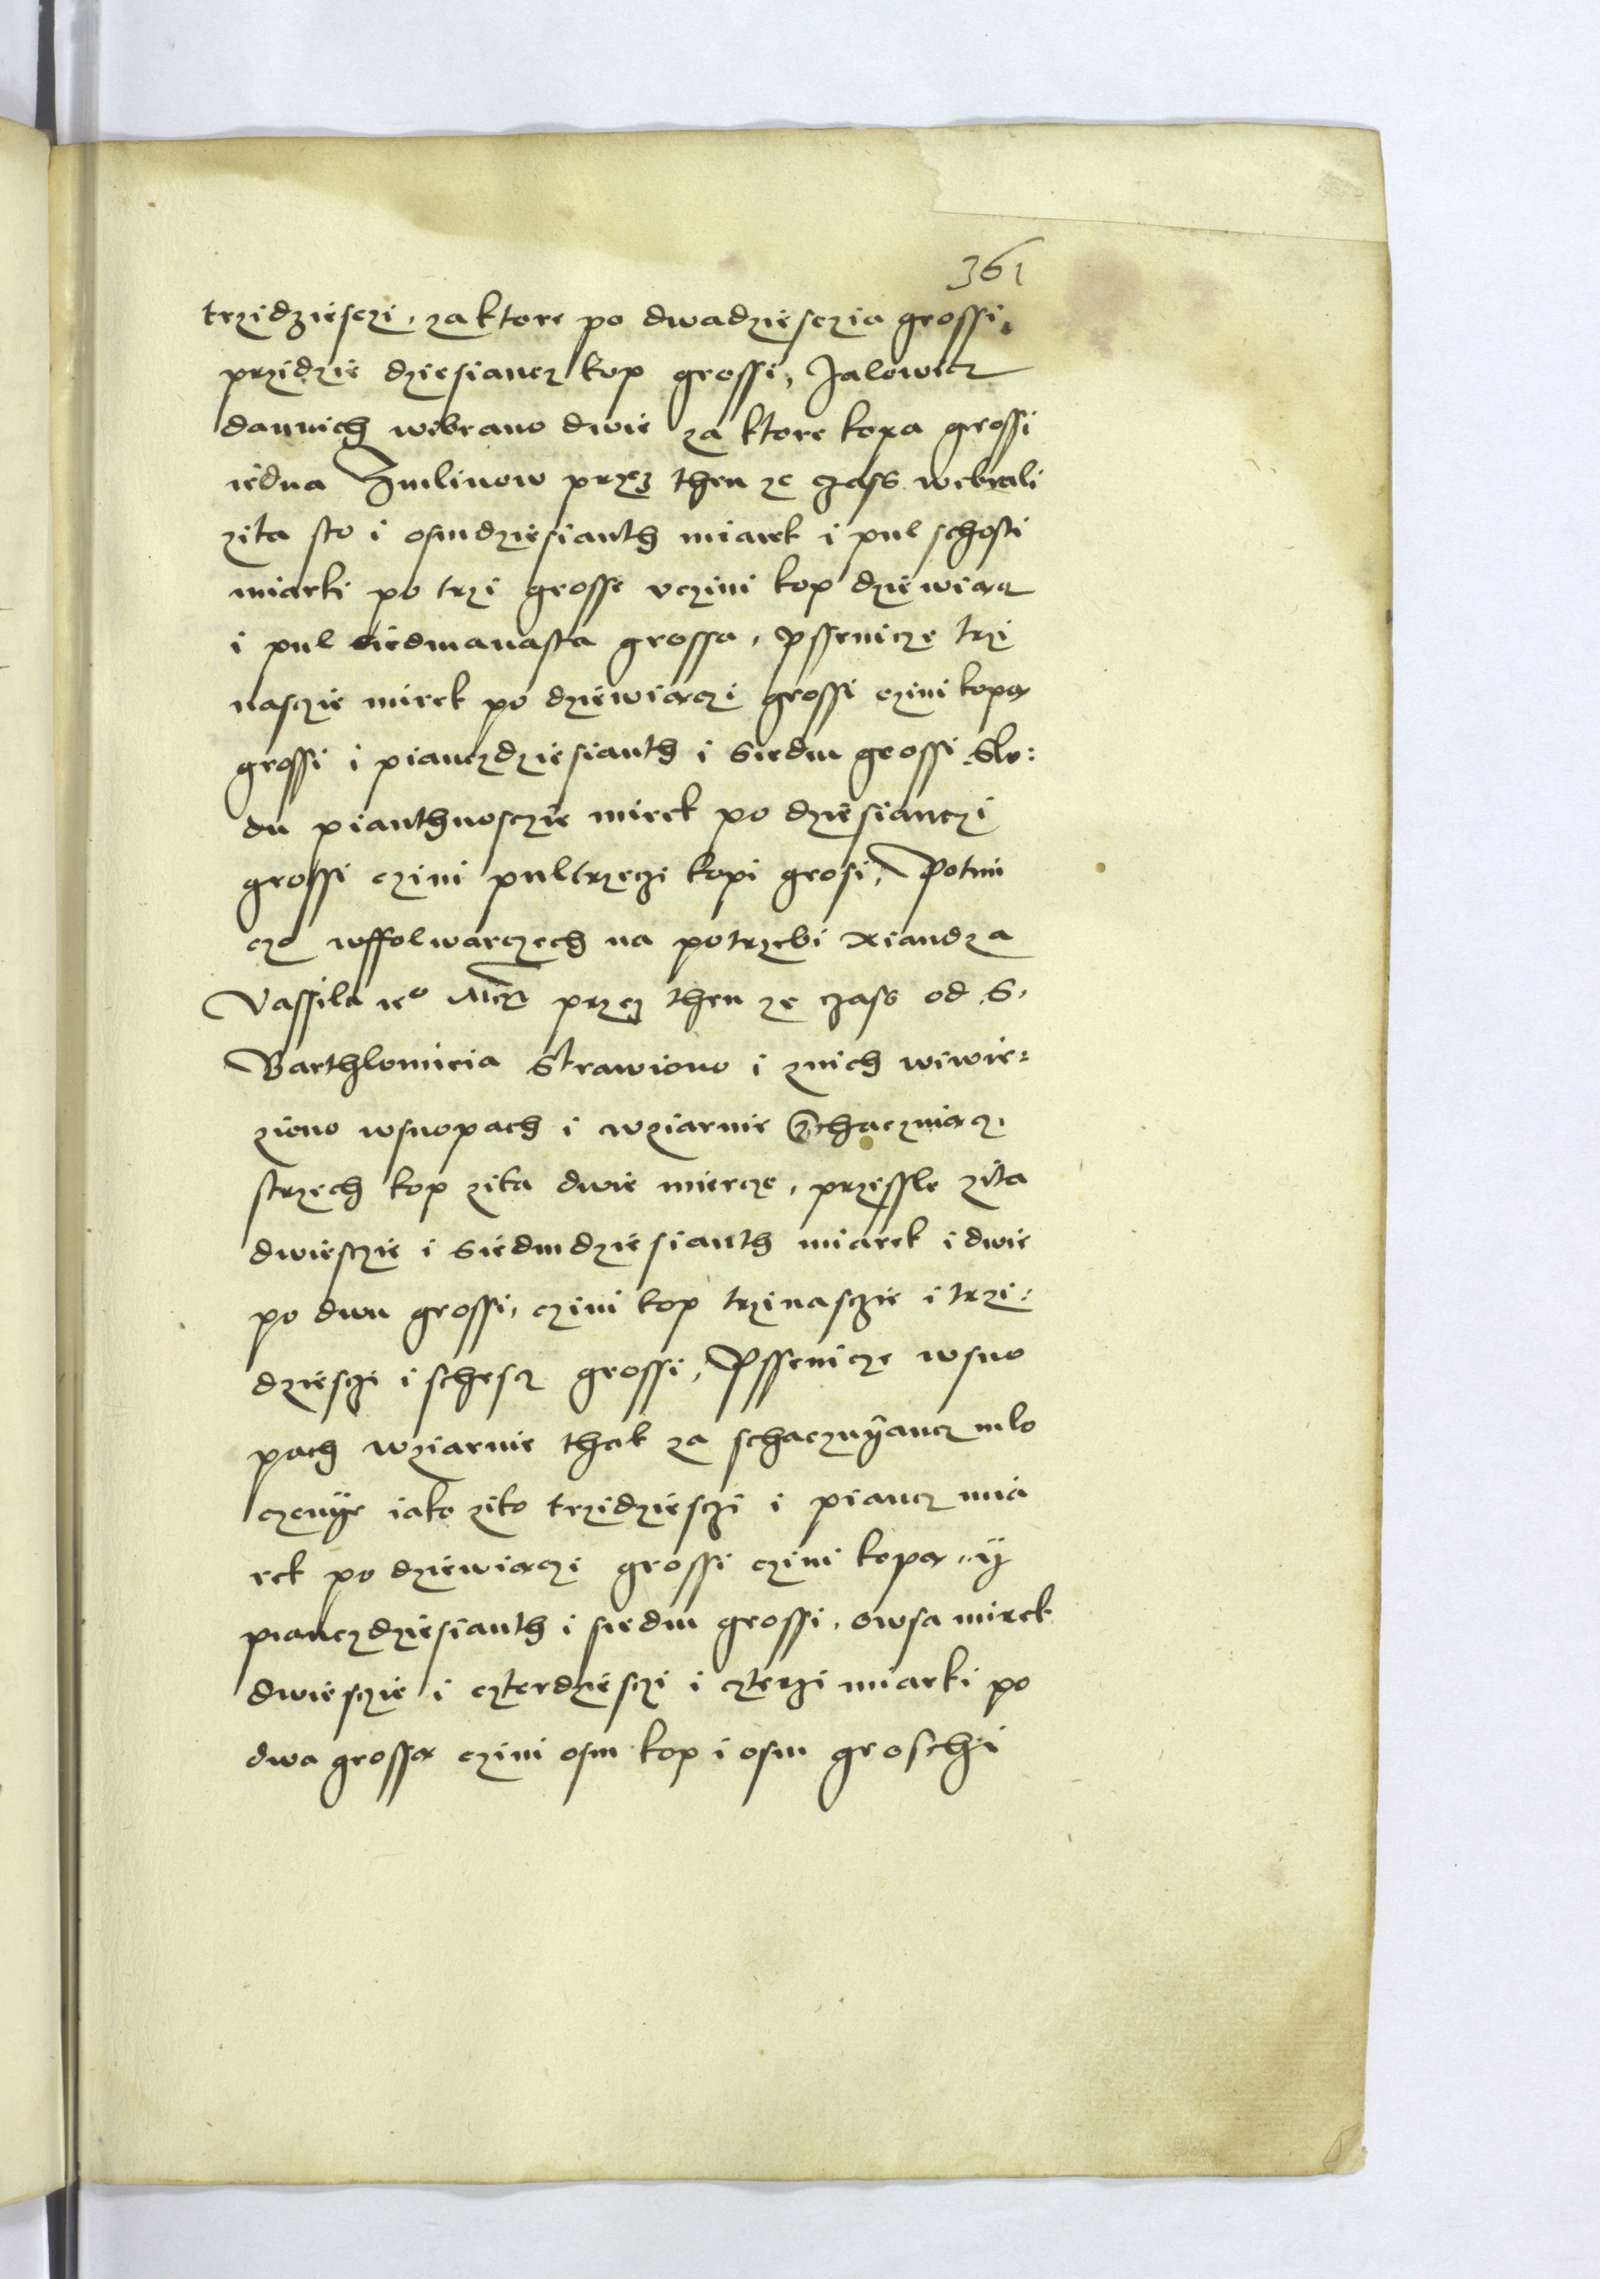 361
trzidziesczi, za ktore po dwadziesczia grossi,
przidzie dziesiancz kop grossi, Jalowicz
dannich webrano dwie za ktore kopa grossi
iedna Zmlinow przez then ze czass webrali
zita sto i osmdziesianth miarek i pul schosti
miarki po trzi grosse vczini kop dziewiącz
i pul siedmanasta grossa, pssenicze trzi
nasczie mirek po dziewiączi grossi czini kopą
grossi i pianczdziesianth i siedm grossi Slo:
du pianthnosczie mirek po dziesianczi
grossi czini pultrzeczi kopi grosi, Potim
cze wffolwarczech na potrzebi xiandza
Vassila ieo Mczi przez then ze czass od S.
Barthlomieia Strawiono i znich wiwie:
ziono wsnopach i wziarnie Schaczniącz,
strzech kop zita dwie miercze, przessle zita
dwiesczie i siedmdziesianth miarek i dwie
po dwu grossi, czini kop trzinasczie i trzi:
dziesczi i schescz grossi, Pssenicze wsno
pach wziarnie thak za schacznÿancz mlo
czenÿe iako zito trzidziesczi i piancz mia
rek po dziewiączi grossi czini kopą ÿ
pianczdziesianth i siedm grossi, owsa mirek
dwiesczie i czterdziesczi i czterzi miarki po
dwa grossą czini osm kop i osm groschi